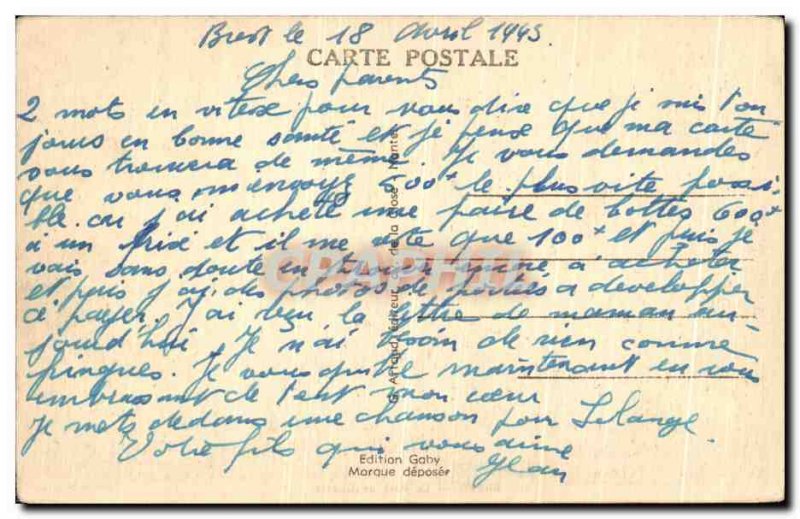 Brest le 18 Avril 1945.
CARTE POSTALE
Chers parents
2 mots en vitesse pour vous dire que je suis tou
jours en bonne santé et je pense que ma carte
vous trouvera de même. Je vous demandes
que vous m'envoyé 500+ le plus vite possi
ble. car j'ai acheté une paire de bottes 600+
à un prix et il me reste que 100+ et puis je
vais sans doute en a acheter
et puis j'ai des photos de a developper
et payer. J'ai reçu la lettre de maman au
jourd'hui. Je n'ai besoin de rien comme
fringues. Je vous quitte maintenant en vous
embrassant de tout mon cœur
Je mets dedans une chanson pour Solange.
Votre fils qui vous aime
Jean
Edition Gaby
Marque déposée
Artaud, éditeur de la Fosse Nantes
CPAPHIL